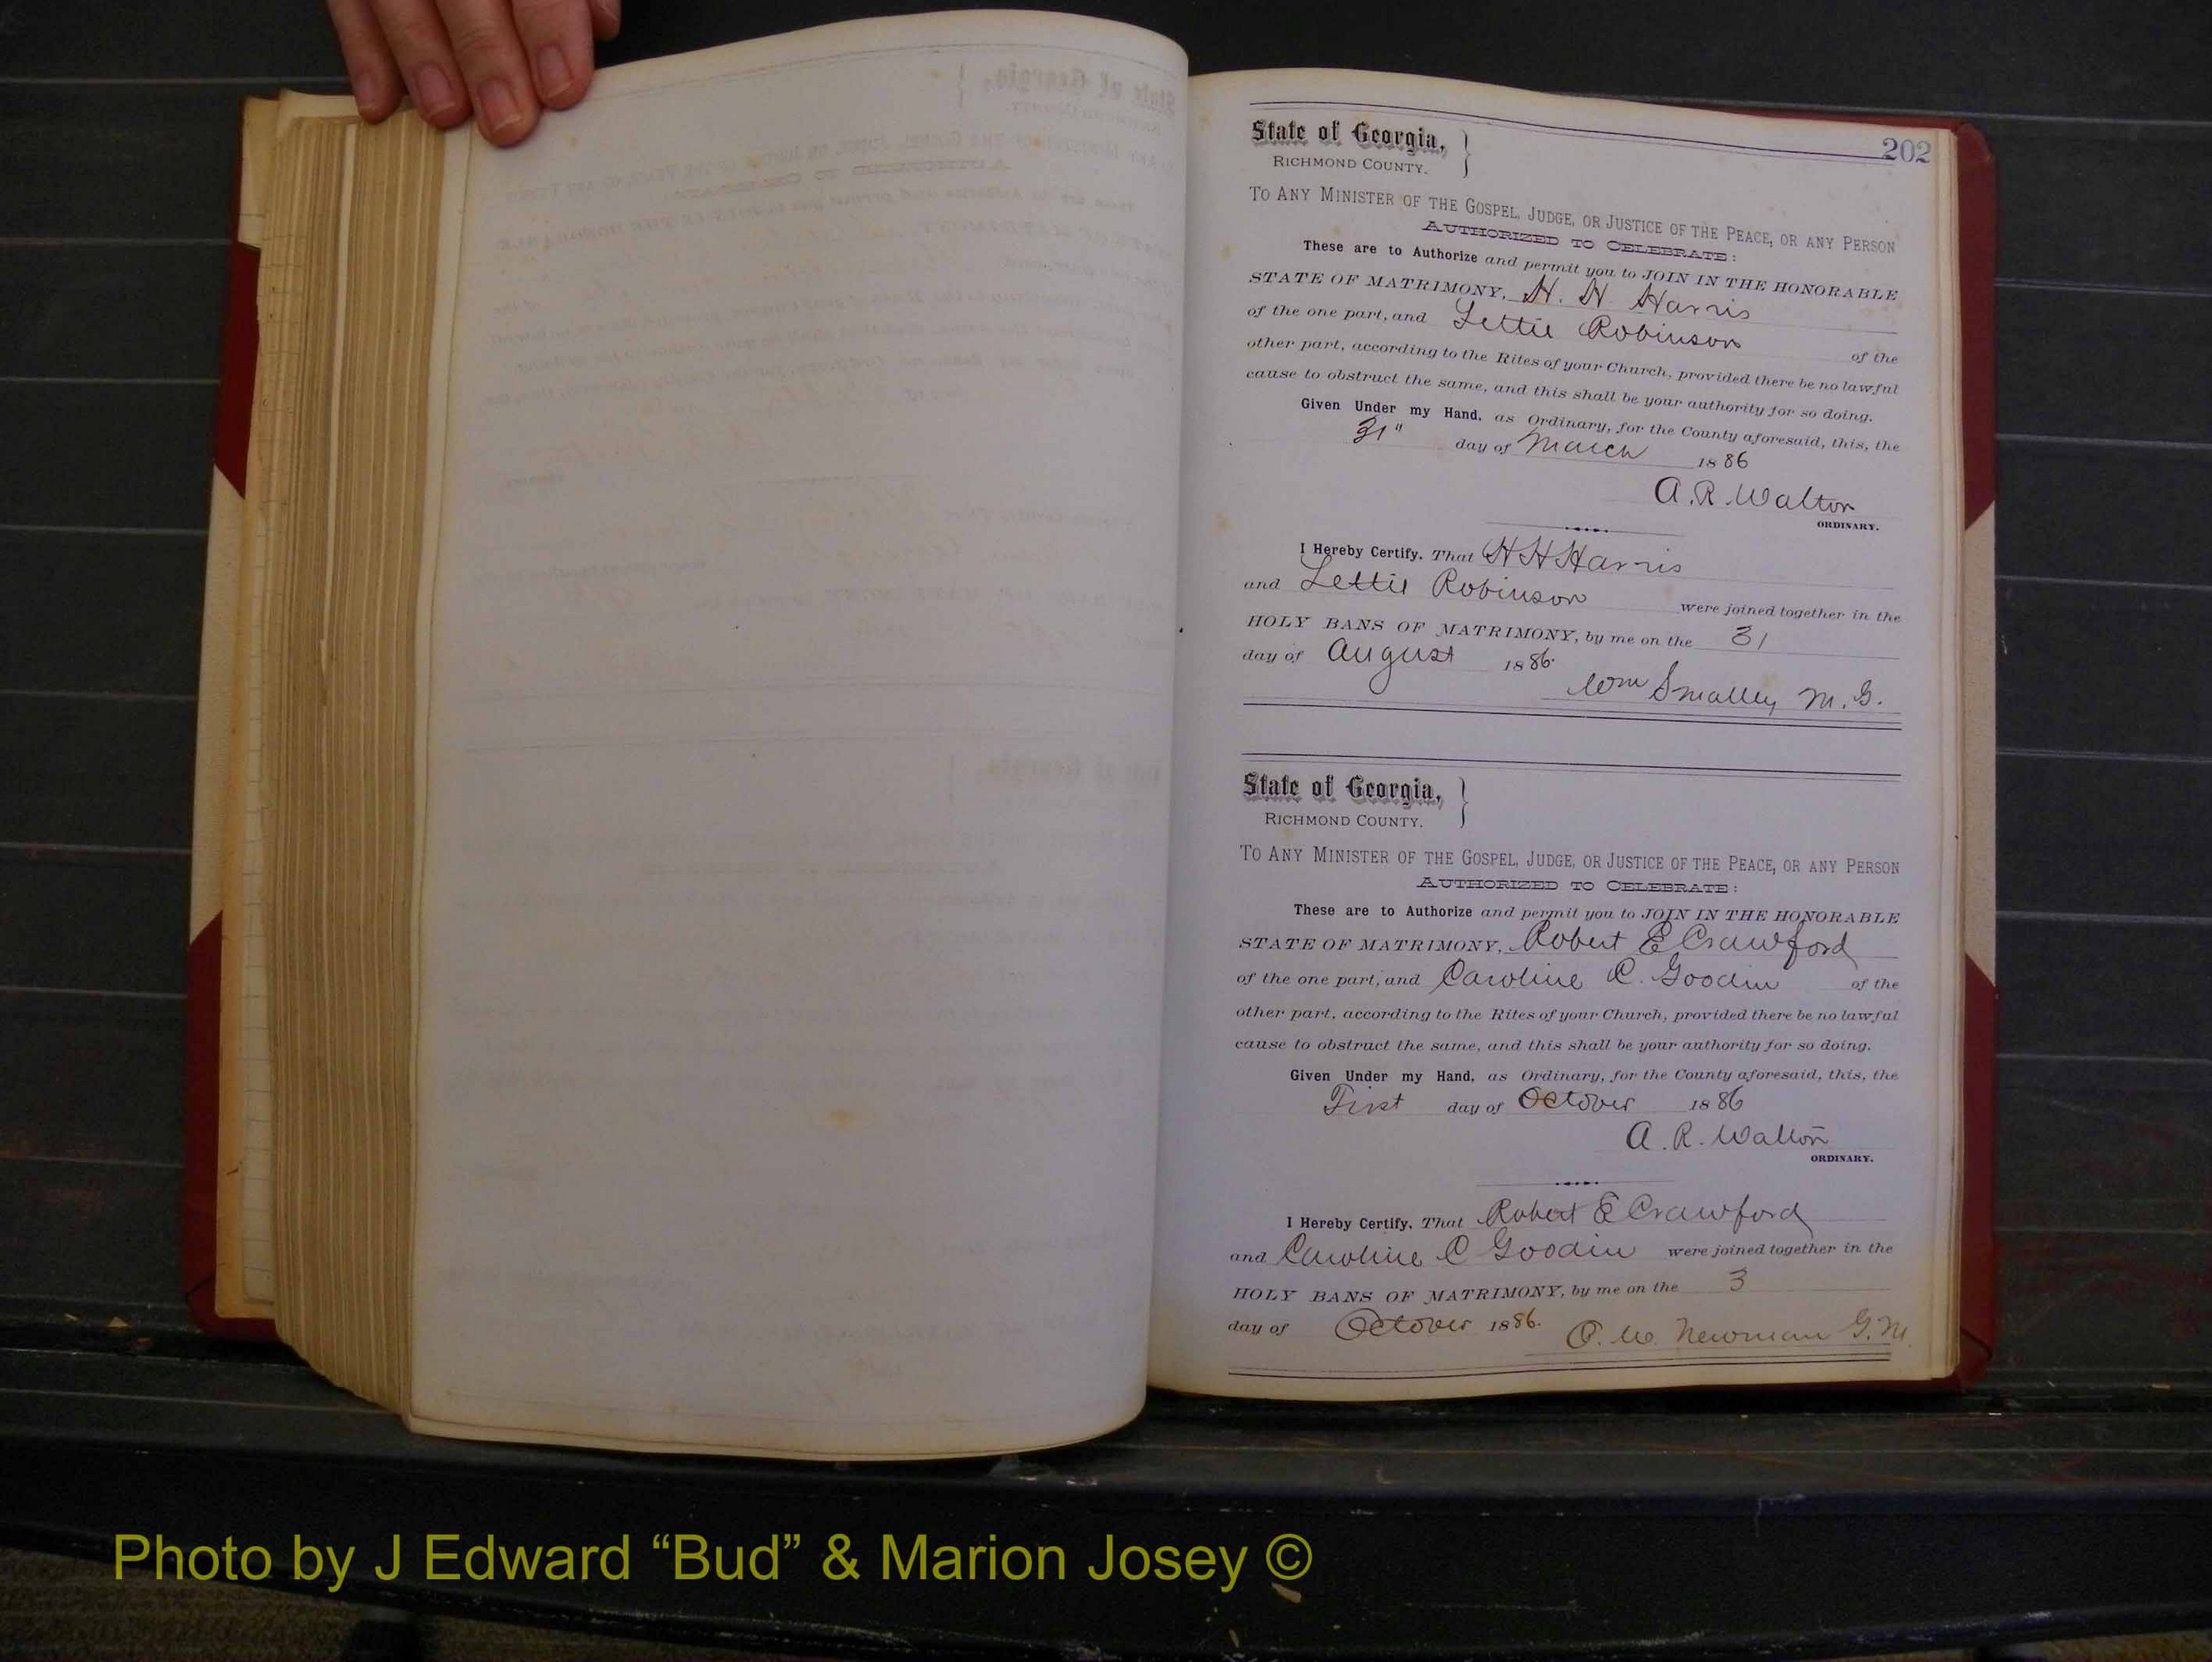 202
State of Georgia,
RICHMOND COUNTY.
TO ANY MINISTER OF THE GOSPEL, JUDGE, OR JUSTICE OF THE PEACE, OR ANY PERSON
AUTHORIZED TO CELEBRATE:
These are to Authorize and permit you to JOIN IN THE HONORABLE
STATE OF MATRIMONY, H. H Harris
of the one part, and Lettie Robinson of the
other part, according to the Rites of your Church, provided there be no lawful
cause to obstruct the same, and this shall be your authority for so doing.
Given Under my Hand, as Ordinary, for the County aforesaid, this, the
31" day of March 1886
A. R. Walton
ORDINARY.
I Hereby Certify, That H H Harris
and Lettie Robinson were joined together in the
HOLY BANS OF MATRIMONY, by me on the 31
day of August 1886.
Wm Smalley M. G.
State of Georgia,
RICHMOND COUNTY.
TO ANY MINISTER OF THE GOSPEL, JUDGE, OR JUSTICE OF THE PEACE, OR ANY PERSON
AUTHORIZED TO CELEBRATE:
These are to Authorize and permit you to JOIN IN THE HONORABLE
STATE OF MATRIMONY, Robert E Crawford
of the one part, and Caroline C. Goodin of the
other part, according to the Rites of your Church, provided there be no lawful
cause to obstruct the same, and this shall be your authority for so doing.
Given Under my Hand, as Ordinary, for the County aforesaid, this, the
First day of October 1886
A. R. Walton
ORDINARY.
I Hereby Certify, That Robert E Crawford
and Caroline C Goodin were joined together in the
HOLY BANS OF MATRIMONY, by me on the 3
day of October 1886.
Newman G. M.
Photo by J Edward “Bud” & Marion Josey ©